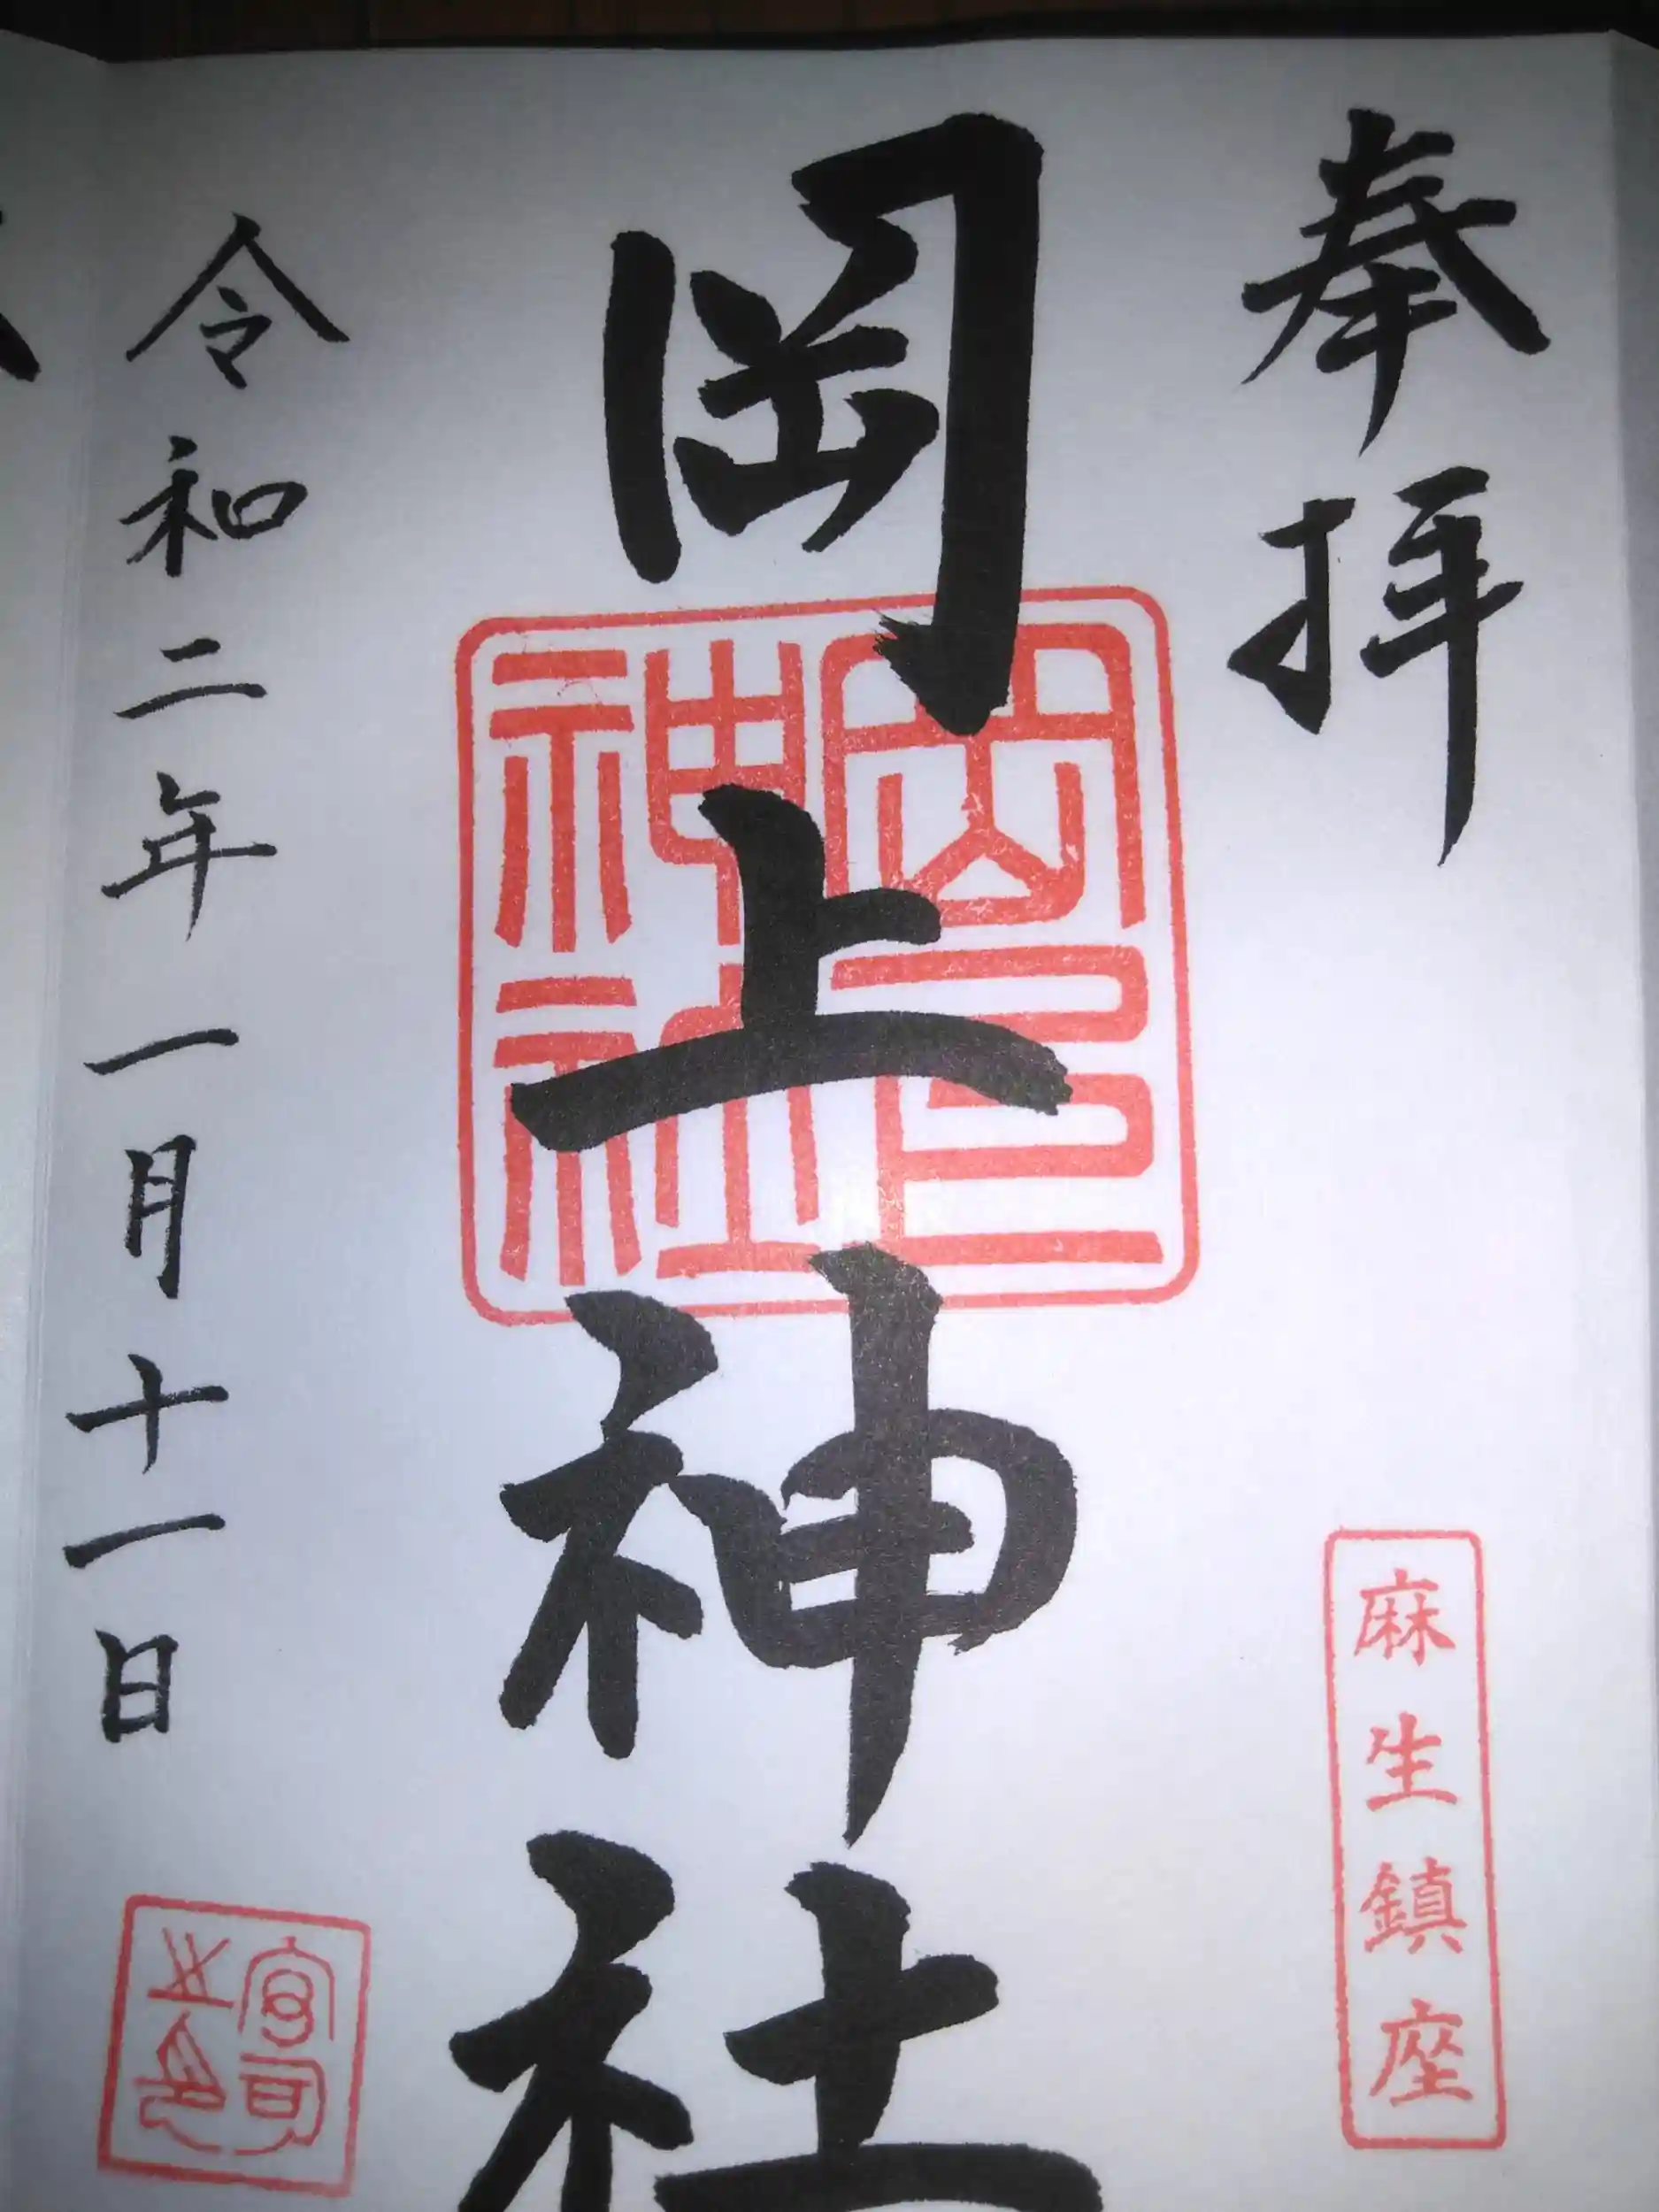 奉拝
麻生鎮座
岡上神社
岡上神社
令和二年一月十一日
宮司之印